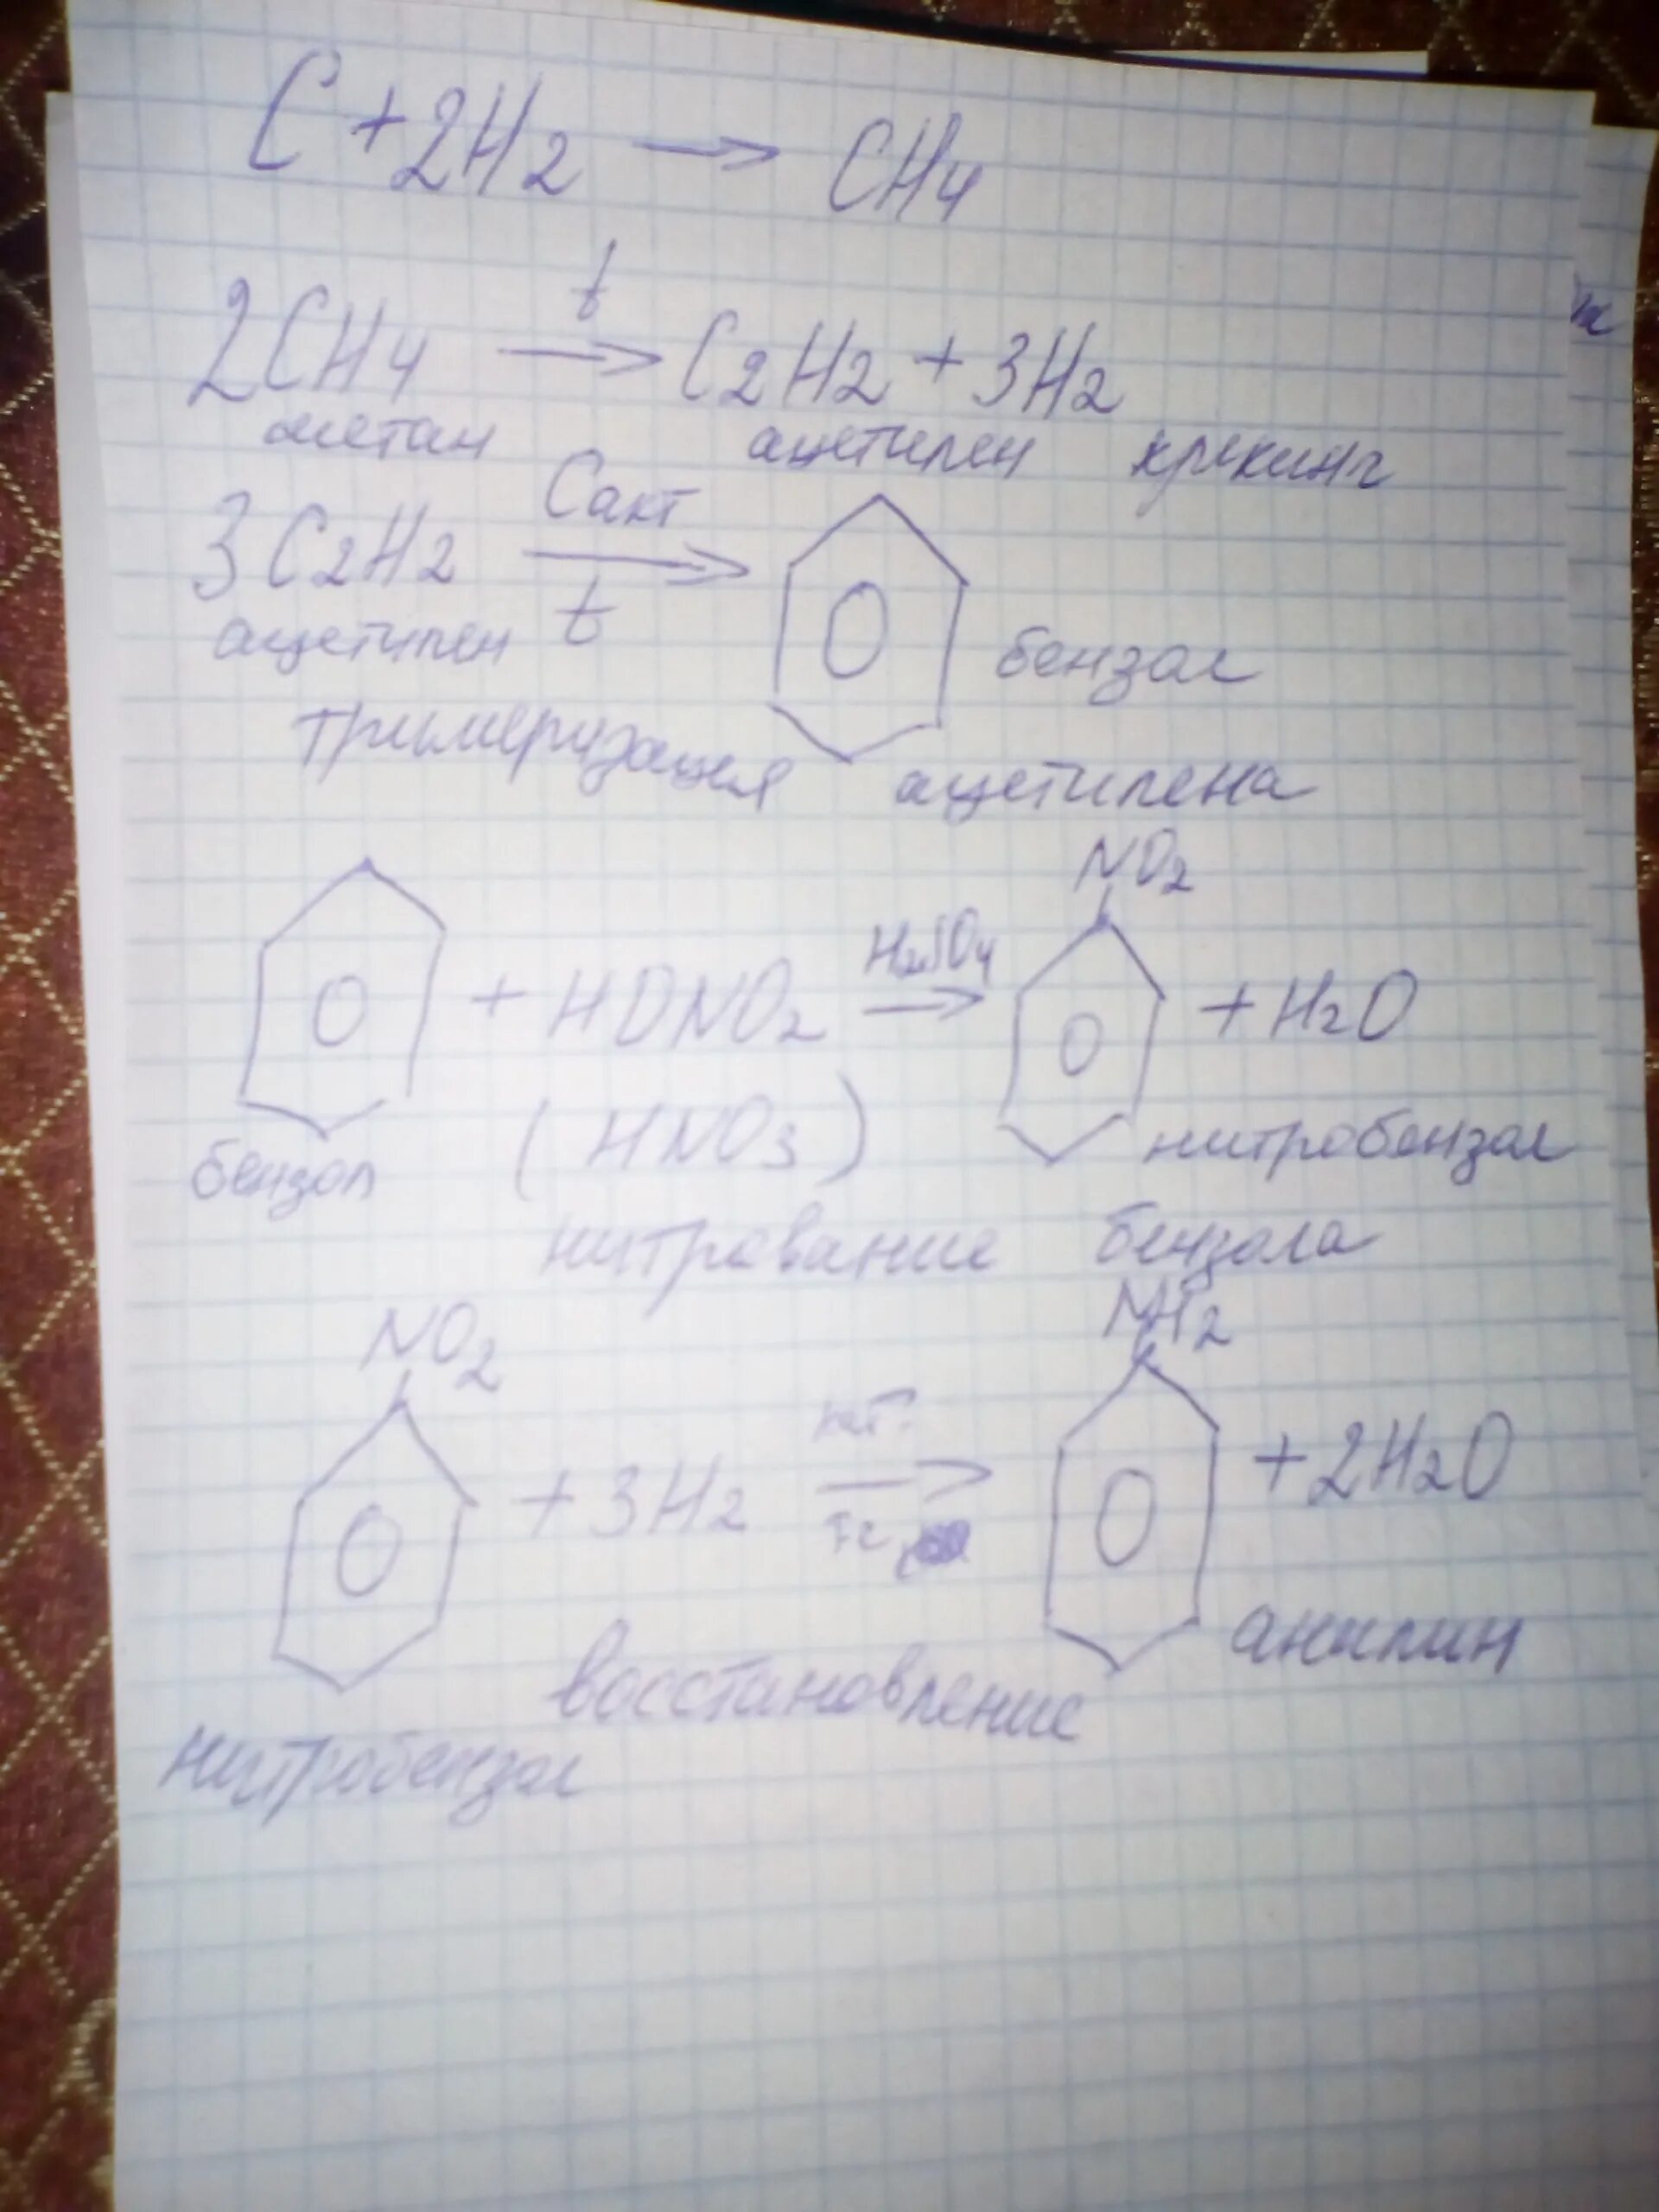 C + 2H2 → CH4
t
2CH4 → C2H2 + 3H2
метан ацетилен крекинг
Cакт
3C2H2 →
t
ацетилен бензол
тримеризация ацетилена
NO2
H2SO4
+ HONO2 → + H2O
бензол (HNO3) нитробензол
нитрование бензола
NO2 NH2
кат.
+ 3H2 → + 2H2O
Fe
анилин
восстановление
нитробензол